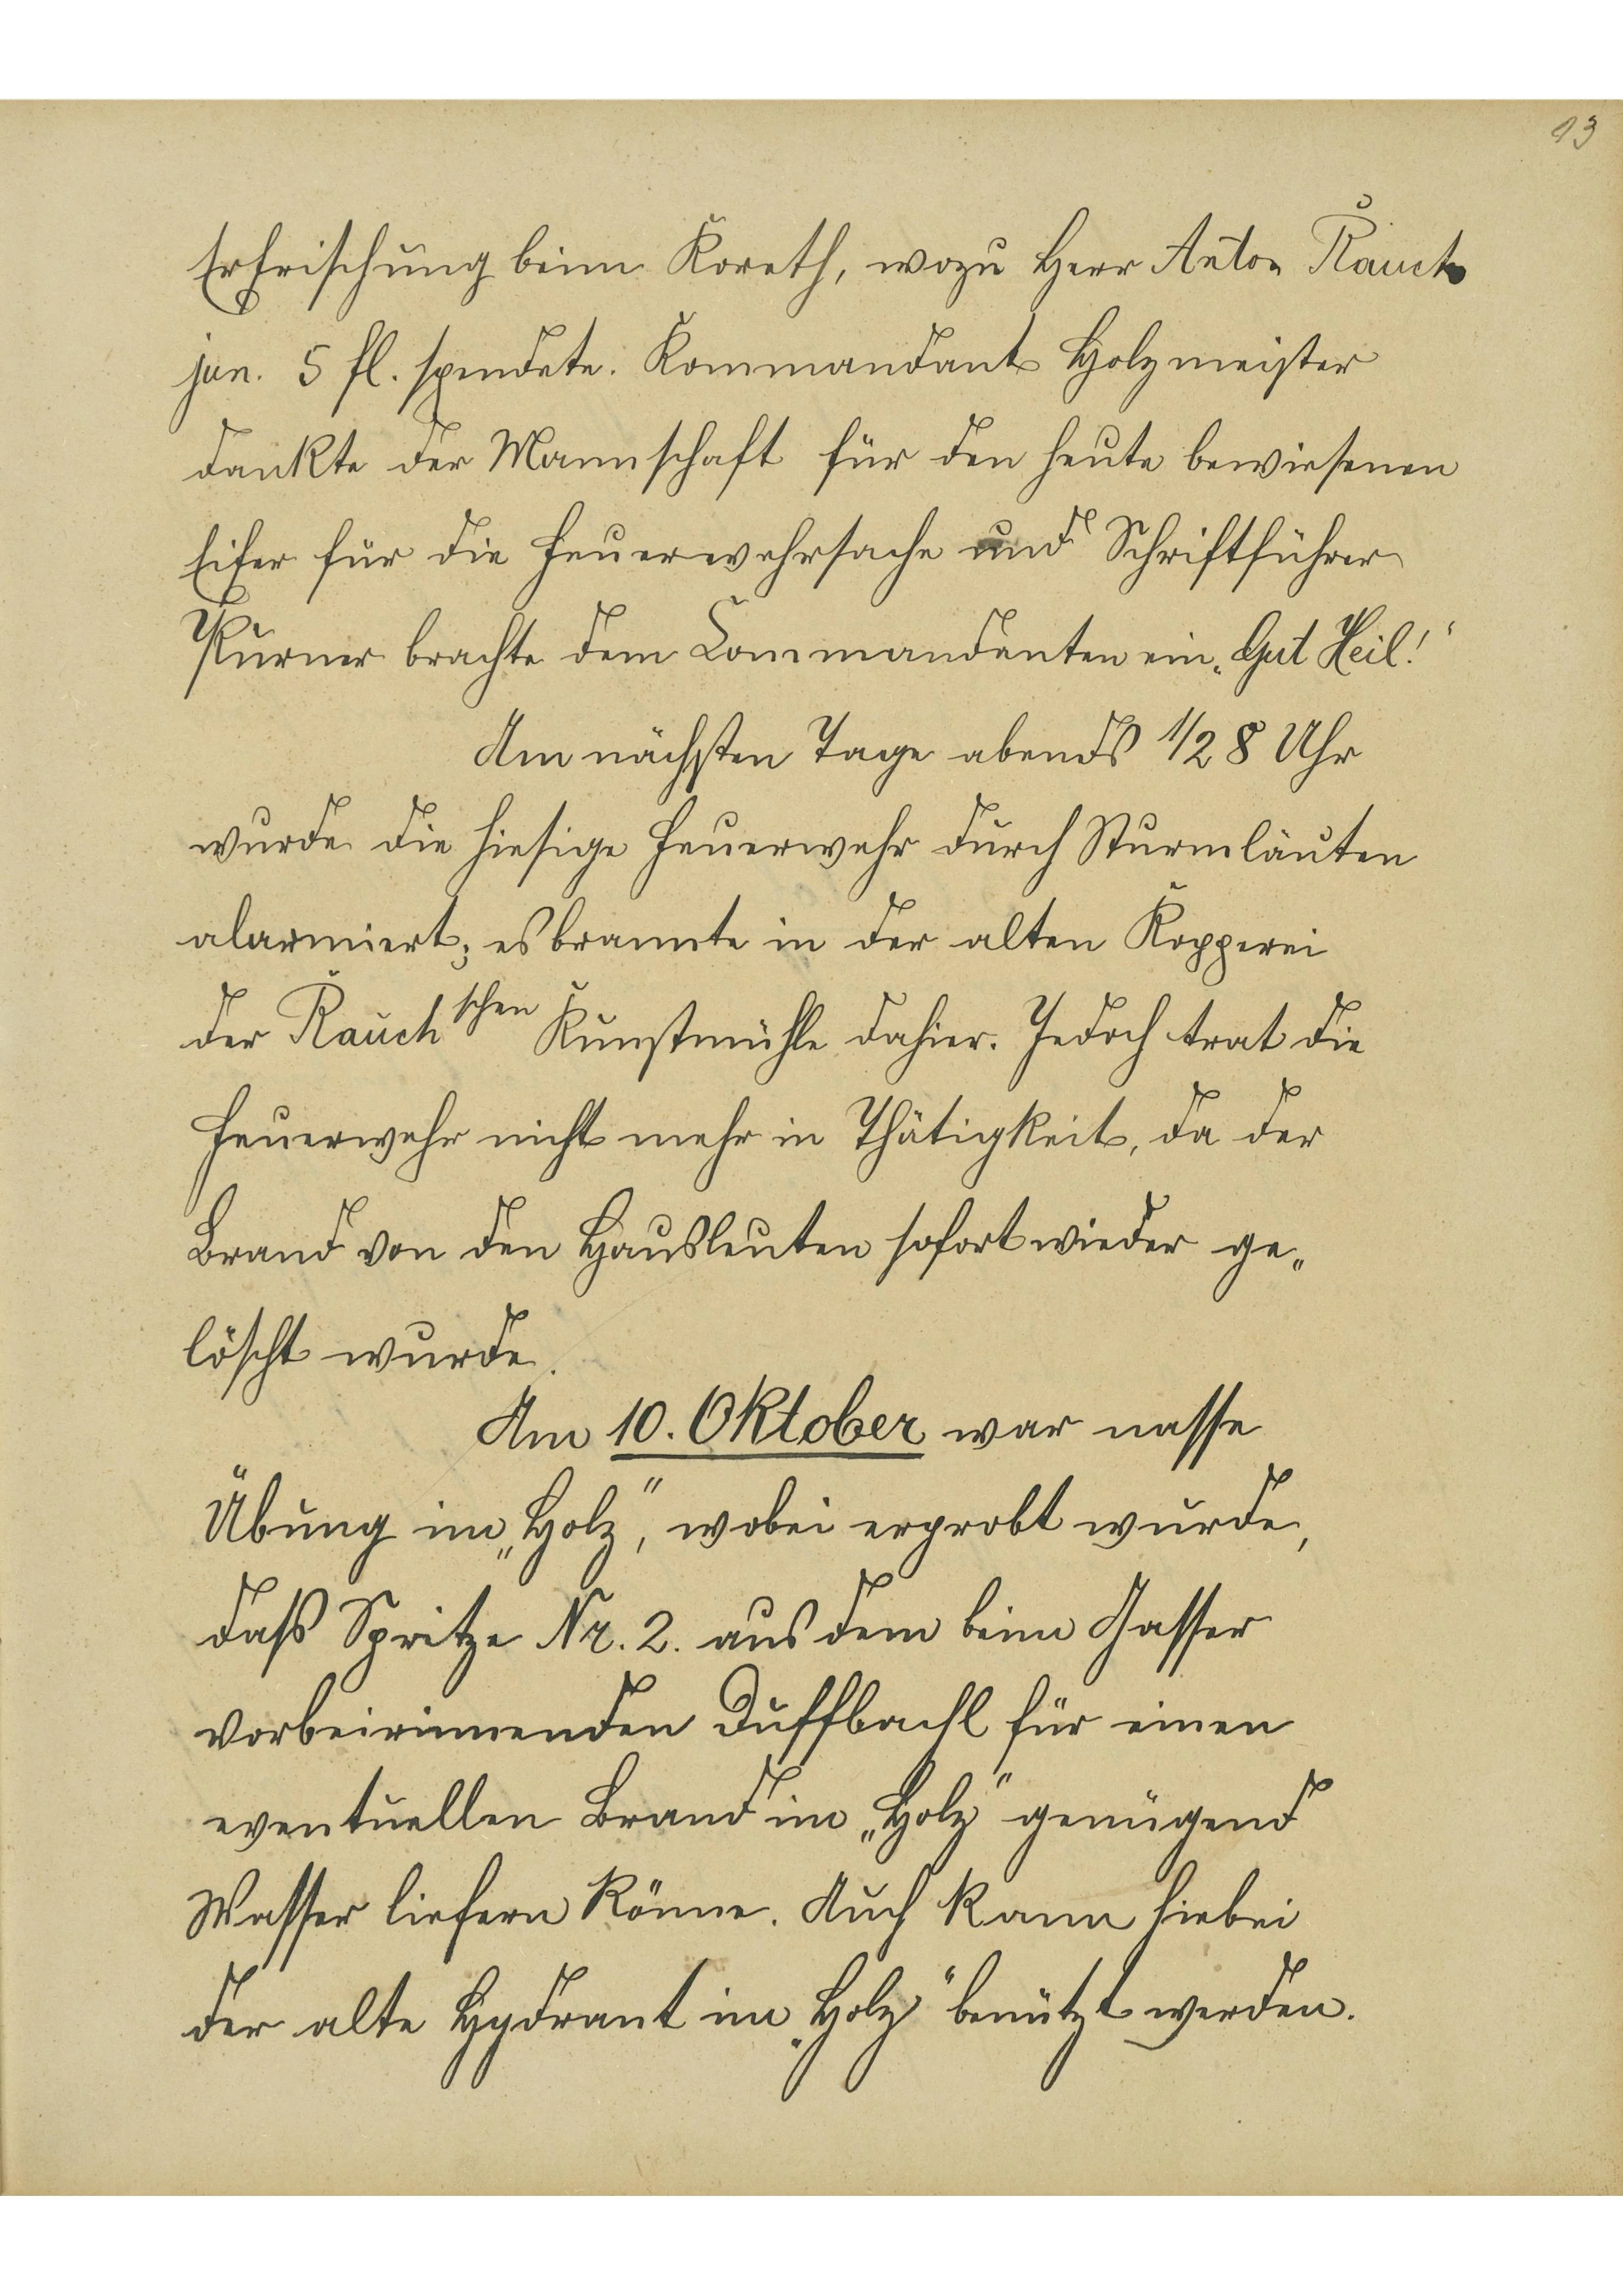 13
Erfrischung beim Koreth, wozu Herr Anton Rauch
jun. 5 fl. spendete. Kommandant Holzmeister
dankte der Mannschaft für den heute bewiesenen
Eifer für die Feuerwehrsache und Schriftführer
Purner brachte dem Commandanten ein „Gut Heil!“
Am nächsten Tage abends 1/2 8 Uhr
wurde die hiesige Feuerwehr durch Sturmläuten
alarmiert; es brannte in der alten Kopperei
der Rauch'schen Kunstmühle dahier. Jedoch trat die
Feuerwehr nicht mehr in Thätigkeit, da der
Brand von den Hausleuten sofort wieder ge„
löscht wurde.
Am 10. Oktober war nasse
Übung im „Holz“, wobei erprobt wurde,
daß Spritze Nr. 2. aus dem beim Gasser
vorbeirinnenden Duftbachl für einen
eventuellen Brand im „Holz“ genügend
Wasser liefern könne. Auch kann hiebei
der alte Hydrant im „Holz“ benützt werden.